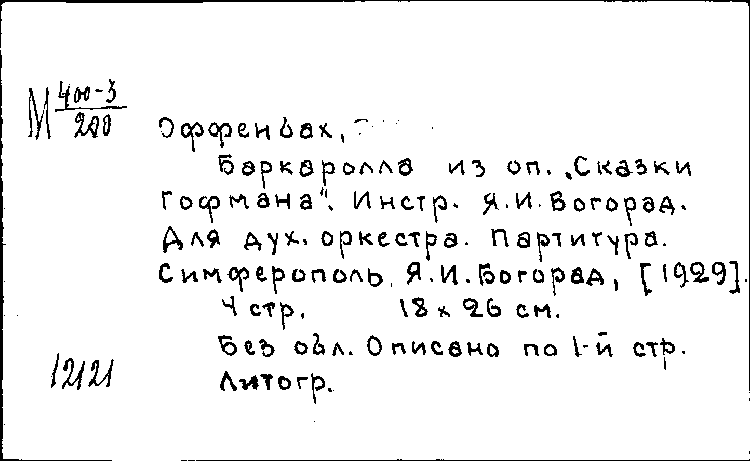 М 400-3/200
Оффенбах,
Баркаролла из оп. „Сказки
Гофмана". Инстр. Я.И. Богорад.
Для дух. оркестра. Партитура.
Симферополь, Я.И. Богорад, [1929].
4 стр. 18 x 26 см.
Без обл. Описано по 1-й стр.
Литогр.
12121